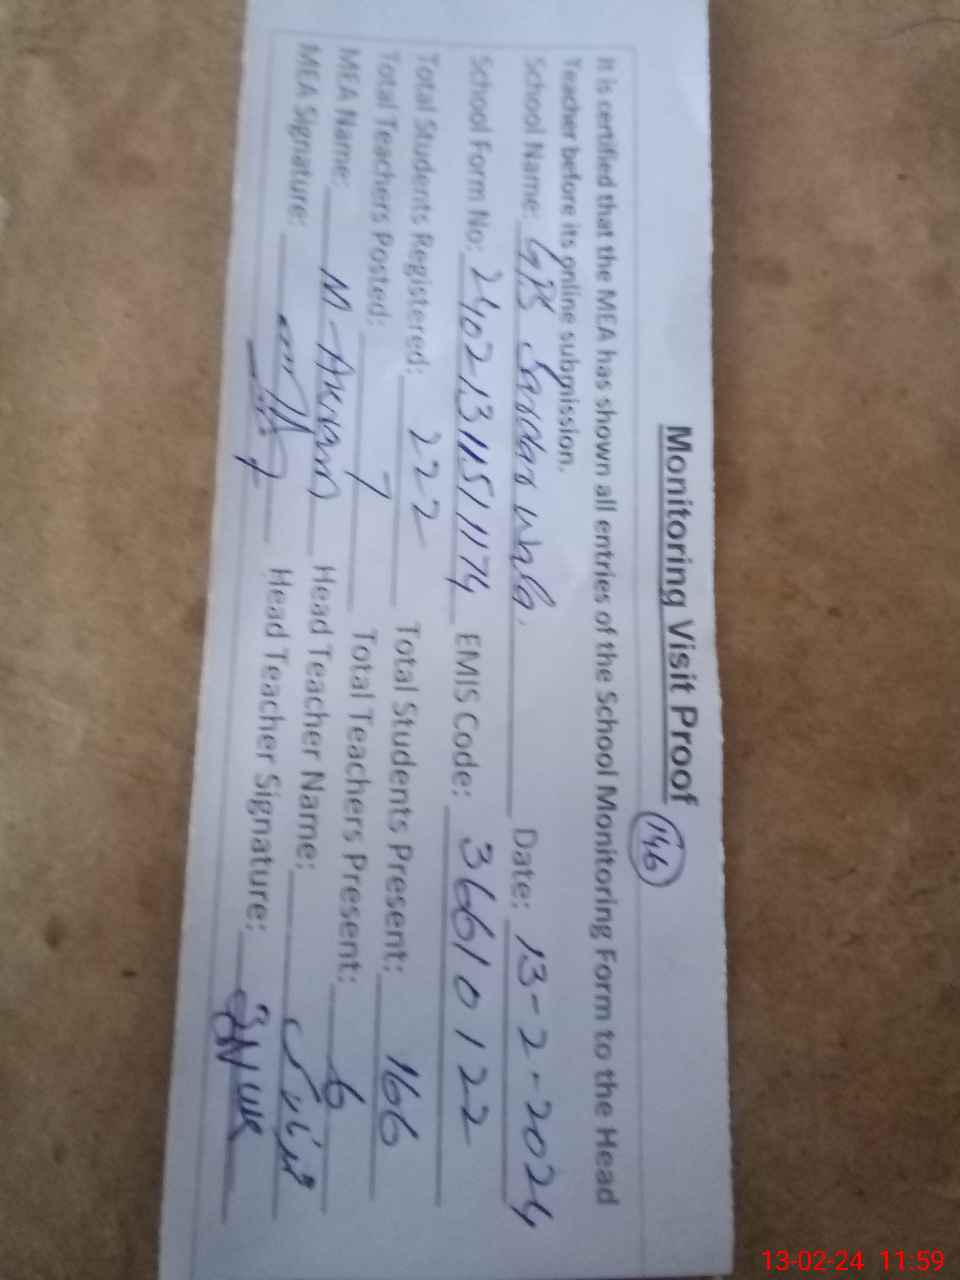 Monitoring Visit Proof
146
It is certified that the MEA has shown all entries of the School Monitoring Form to the Head
Teacher before its online submission.
School Name: GPS Sardar wala. Date: 13-2-2024
School Form No: EMIS Code: 36610122
Total Students Registered: 222 Total Students Present: 166
Total Teachers Posted: 7 Total Teachers Present: 6
MEA Name: M-Akram Head Teacher Name:
MEA Signature: Head Teacher Signature:
13-02-24 11:59